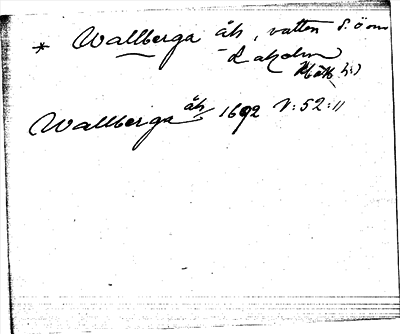 * Wallberga åh, vatten S. öm
Laholm
Wallberga åh 1692 V:52:11